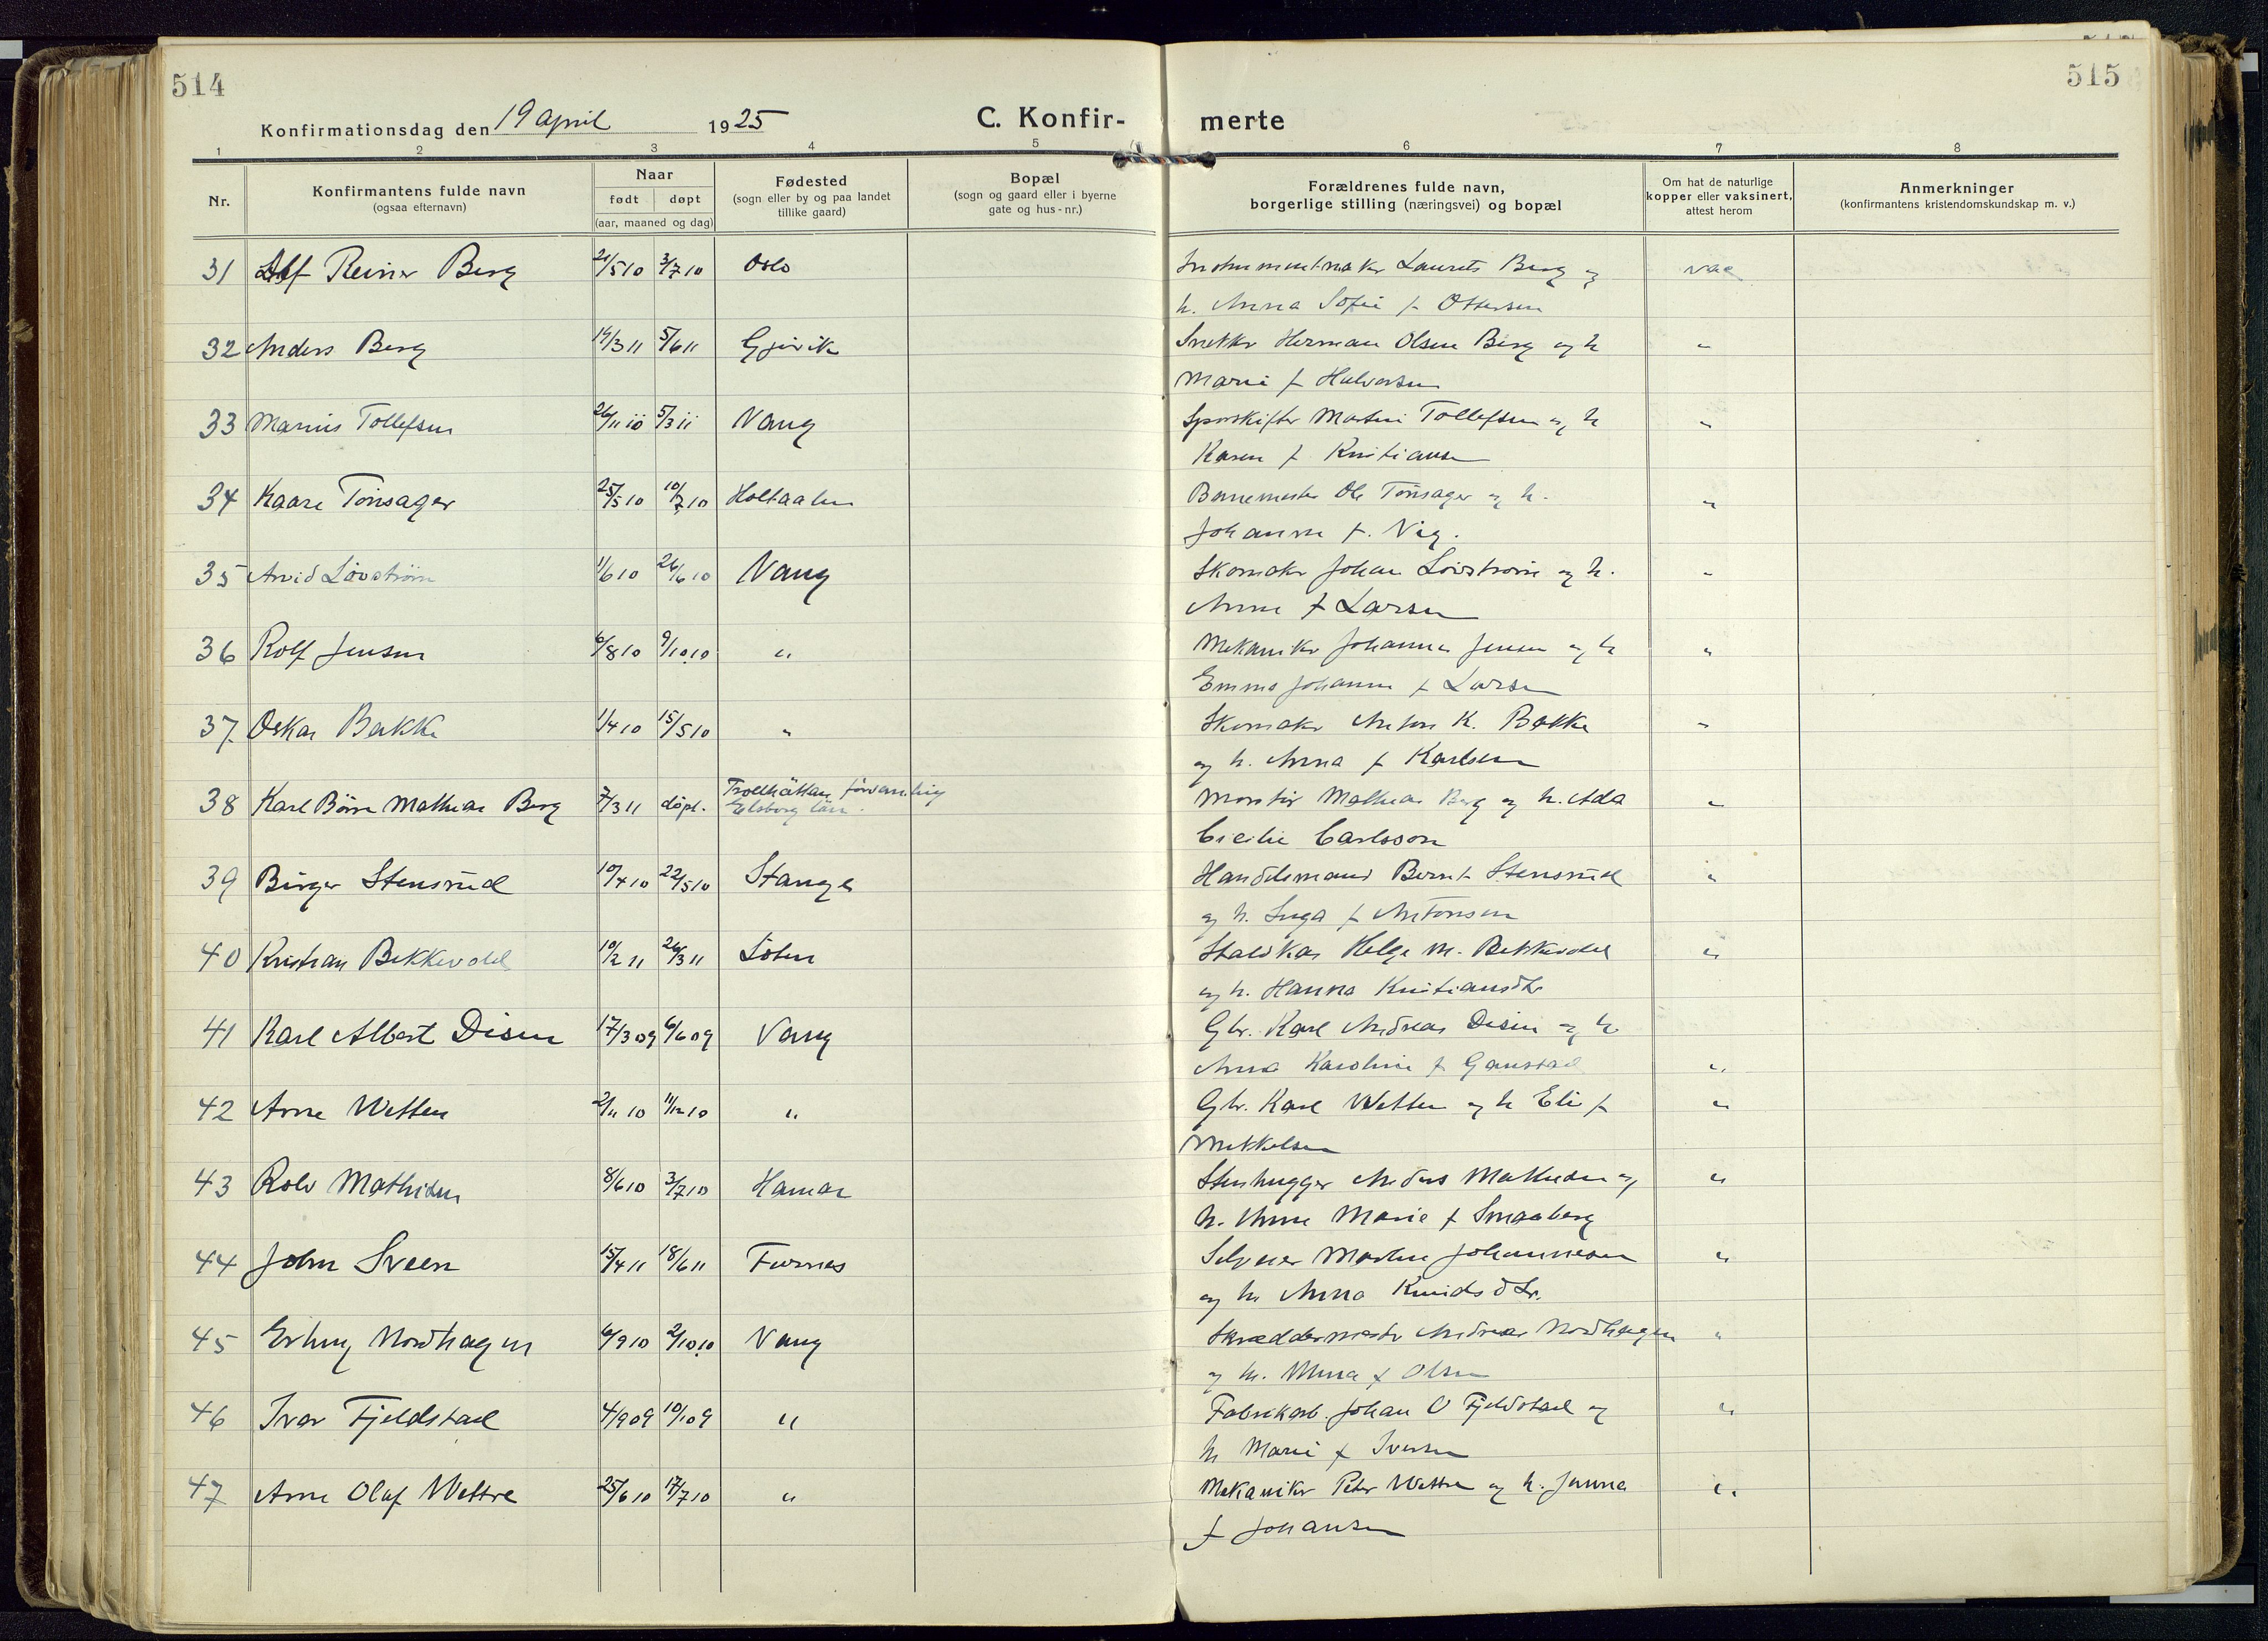 514
515
Konfirmationsdag den 19 april 1925
C. Konfir- merte
1 2 3 4 5 6 7 8
Nr.
Konfirmantens fulde navn
(ogsaa efternavn)
Naar
født døpt
(aar, maaned og dag)
Fødested
(sogn eller by og paa landet
tillike gaard)
Bopæl
(sogn og gaard eller i byerne
gate og hus-nr.)
Forældrenes fulde navn,
borgerlige stilling (næringsvei) og bopæl
Om hat de naturlige
kopper eller vaksinert,
attest herom
Anmerkninger
(konfirmantens kristendomskundskap m. v.)
31 Alf Reiner Berg 21/5 10 3/7 10 Oslo Instrumentmaker Laurits Berg og vac
h. Anna Sofie f Ottersen
32 Anders Berg 19/3 11 5/6 11 Gjøvik Snekker Herman Olsen Berg og h "
Marie f Halvorsen
33 Marius Tollefsen 26/11 10 5/3 11 Vang Sporskifter Martin Tollefsen og h "
Karen f Kristiansen
34 Kaare Tønsager 25/5 10 10/7 10 Holtaalen Banemester Ole Tønsager og h. "
Johanne f. Vig.
35 Arvid Løvstrøm 1/6 10 26/6 10 Vang Skomaker Johan Løvstrøm og h. "
Anne f Larsen
36 Rolf Jensen 6/8 10 9/10 10 " Mekaniker Johannes Jensen og h "
Emma Johanne f Larsen
37. Oskar Bakke 1/4 10 15/5 10 " Skomaker Anton K. Bakke "
og h. Anna f Karlsen
38 Karl Børre Mathias Berg 7/3 11 døpt. Trollhättan församling
Elsborg län. Montør Mathias Berg og h. Ada "
Cicilie Carlsson
39 Birger Stensrud 10/4 10 22/5 10 Stange Handelsmand Bernt Stensrud "
og h. Inga f Antonsen
40 Kristian Bekkevold 10/2 11 26/3 11 Løten Staldkar Helge M. Bekkevold "
og h. Hanna Kristiansdtr
41 Karl Albert Disen 17/3 09 6/6 09 Vang Gbr. Karl Andreas Disen og h
Anna Karoline f Gaustad "
42 Arne Wetten 2/11 10 11/12 10 " Gbr. Karl Wetten og h Eli f "
Mikkelsen
43 Rolv Mathisen 8/6 10 3/7 10 Hamar Stenhugger Anders Mathisen og "
h. Anne Marie f Smaaberg
44 John Sveen 15/4 11 18/6 11 Furnes Selveier Martin Johannesen "
og h. Anna Knudsdtr.
45 Erling Nordhagen 6/9 10 2/10 10 Vang Skræddermester Andreas Nordhagen "
og h. Anna f Olsen
46 Ivar Fjeldstad 4/9 09 10/10 9 " Fabrikarb. Johan O Fjeldstad og "
h Marie f Iversen
47 Arne Olaf Wettre 25/6 10 17/7 10 " Mekaniker Peter Wettre og h. Janna "
f Johansen